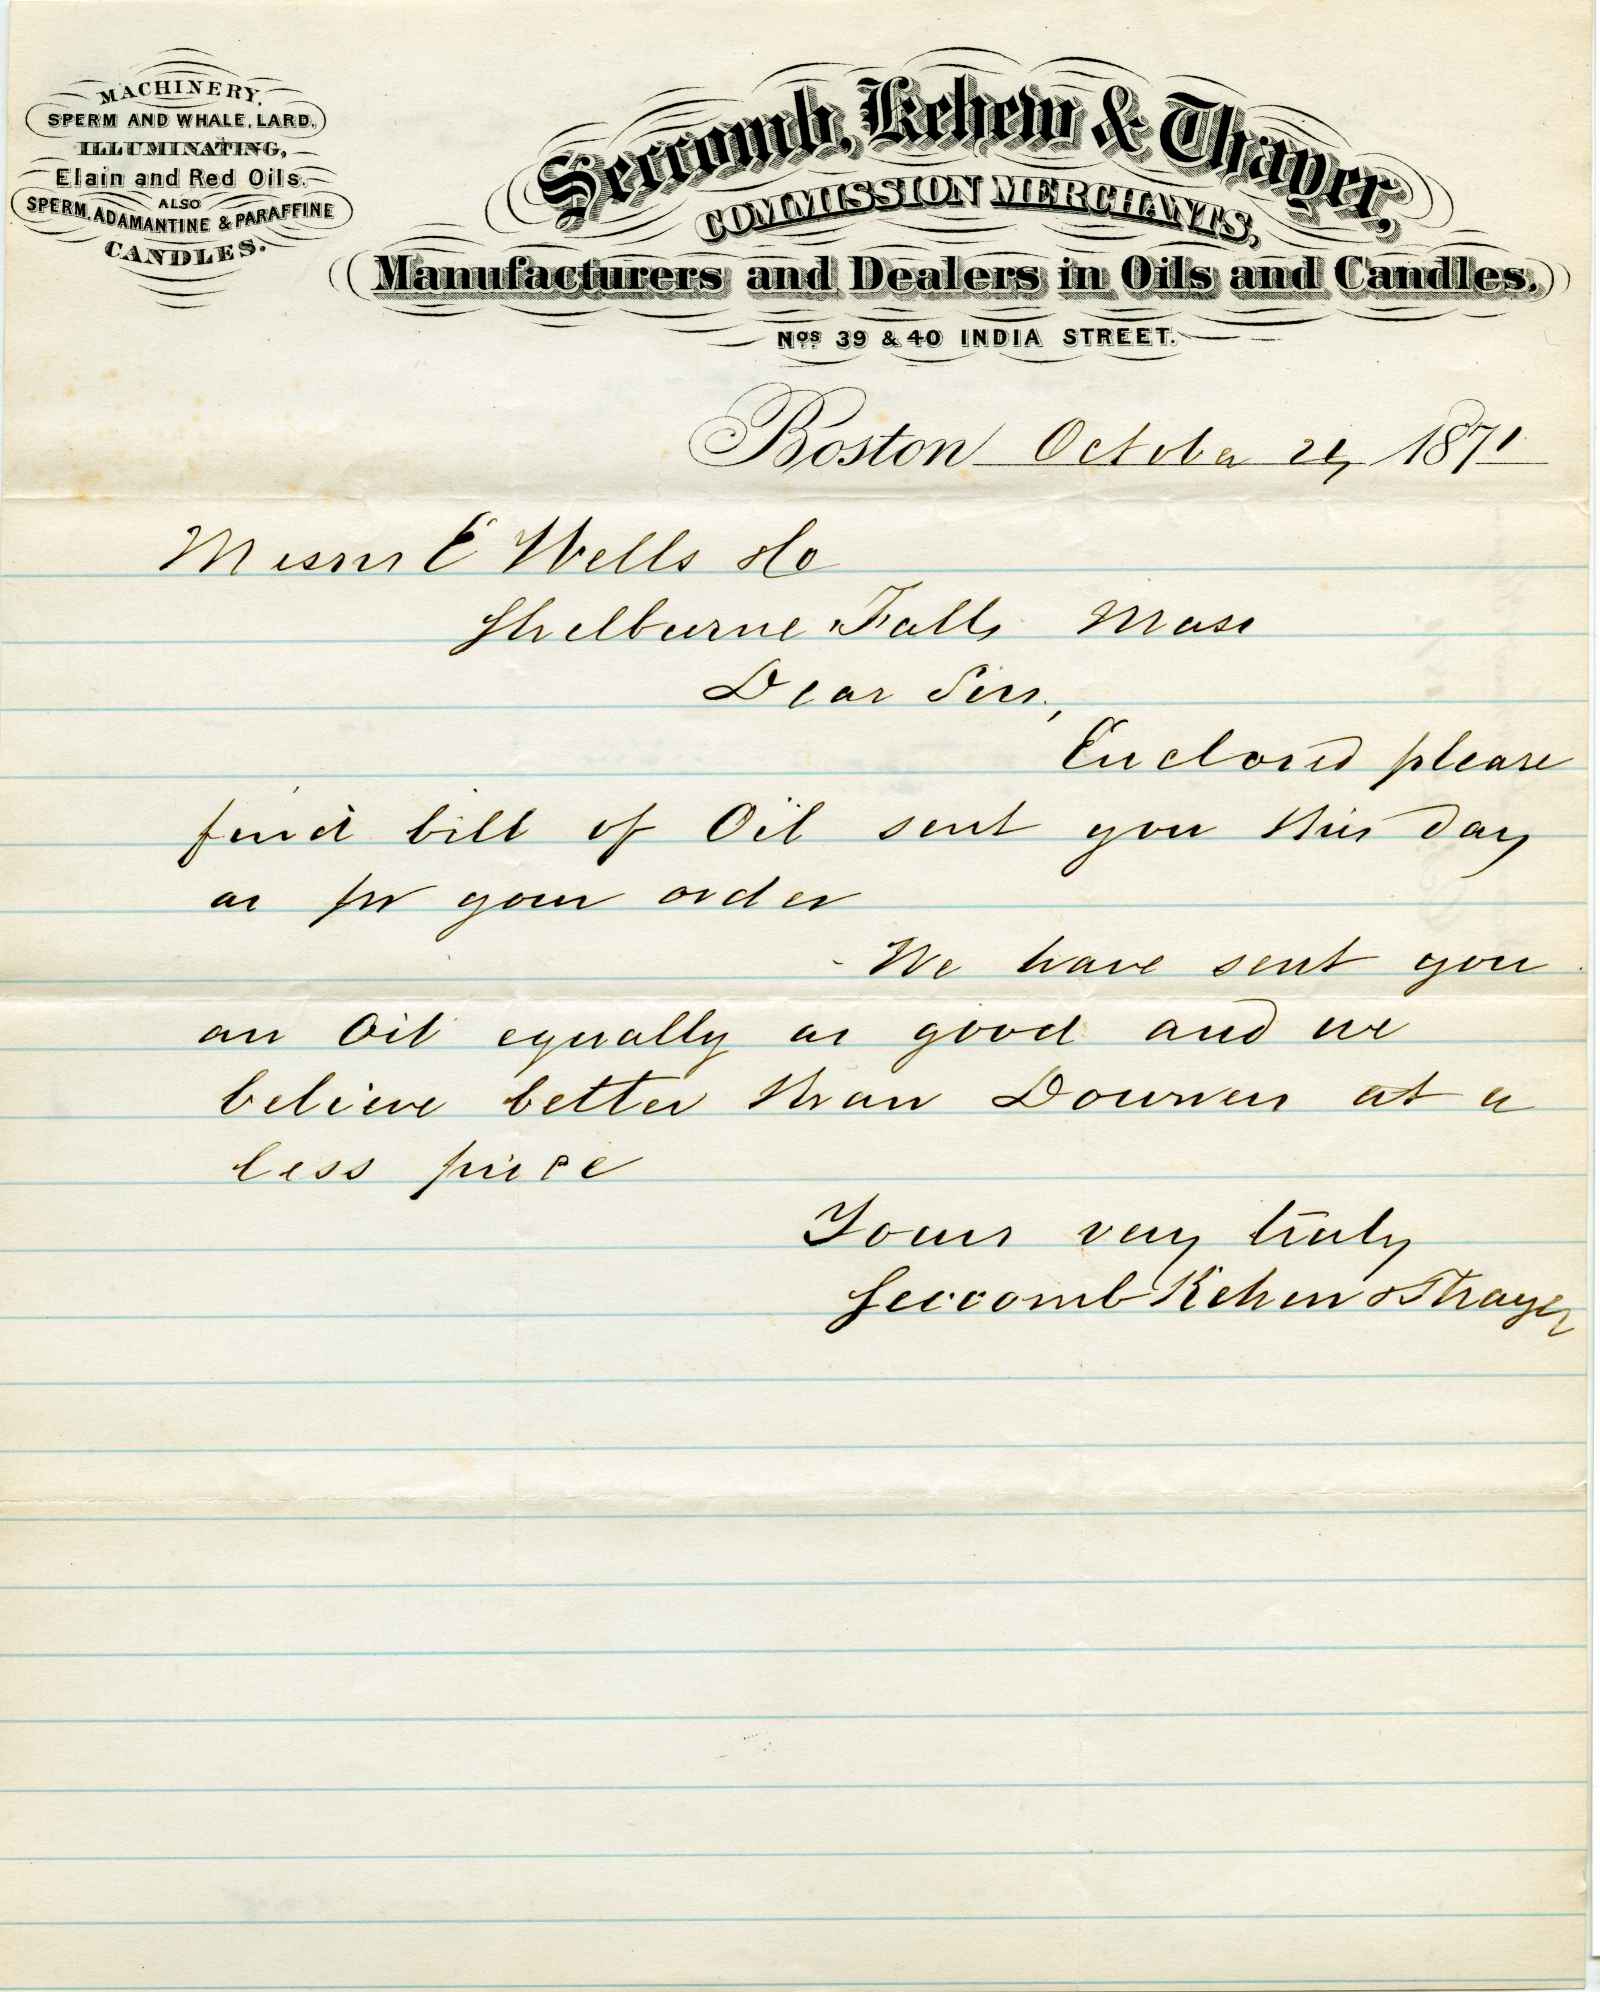 MACHINERY,
SPERM AND WHALE, LARD,
ILLUMINATING,
Elain and Red Oils.
ALSO
SPERM, ADAMANTINE & PARAFFINE
CANDLES.
Seccomb, Kehew & Thayer,
COMMISSION MERCHANTS,
Manufacturers and Dealers in Oils and Candles.
Nos 39 & 40 INDIA STREET.
Boston October 1871
Messrs E Wells & Co
Shelburne Falls Mass
Dear Sirs,
Enclosed please
find bill of Oil sent you this day
as pr your order
We have sent you
an Oil equally as good and we
believe better than Downers at a
less price
Yours very truly
Seccomb Kehew & Thayer